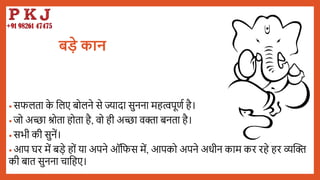 PKJ
+91 98261 47475
बड़े कान
• सफलता के लिए बोलने से ज्यादा सुनना महत्वपूर्ण है।
• जो अच्छा श्रोता होता है, वो ही अच्छा वक्ता बनता है।
• सभी की सुनें।
• आप घर में बड़े हों या अपने ऑफिस में, आपको अपने अधीन काम कर रहे हर व्यक्ति
की बात सुनना चाहिए।